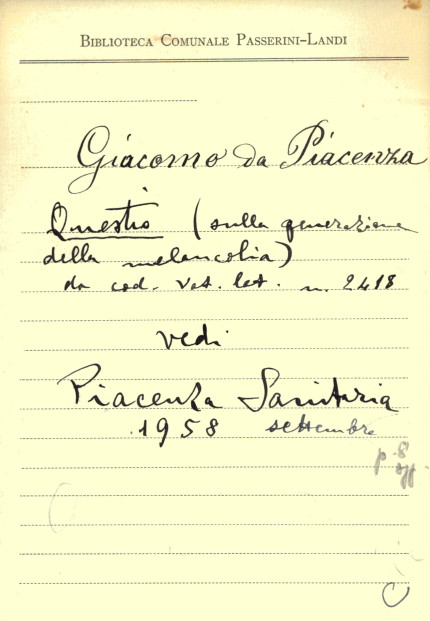 BIBLIOTECA COMUNALE PASSERINI-LANDI
Giacomo da Piacenza
Questio (sulla generazione
della melancolia)
da cod. Vat. lat. n. 2418
vedi
Piacenza Sanitaria
1958 settembre
p. 8